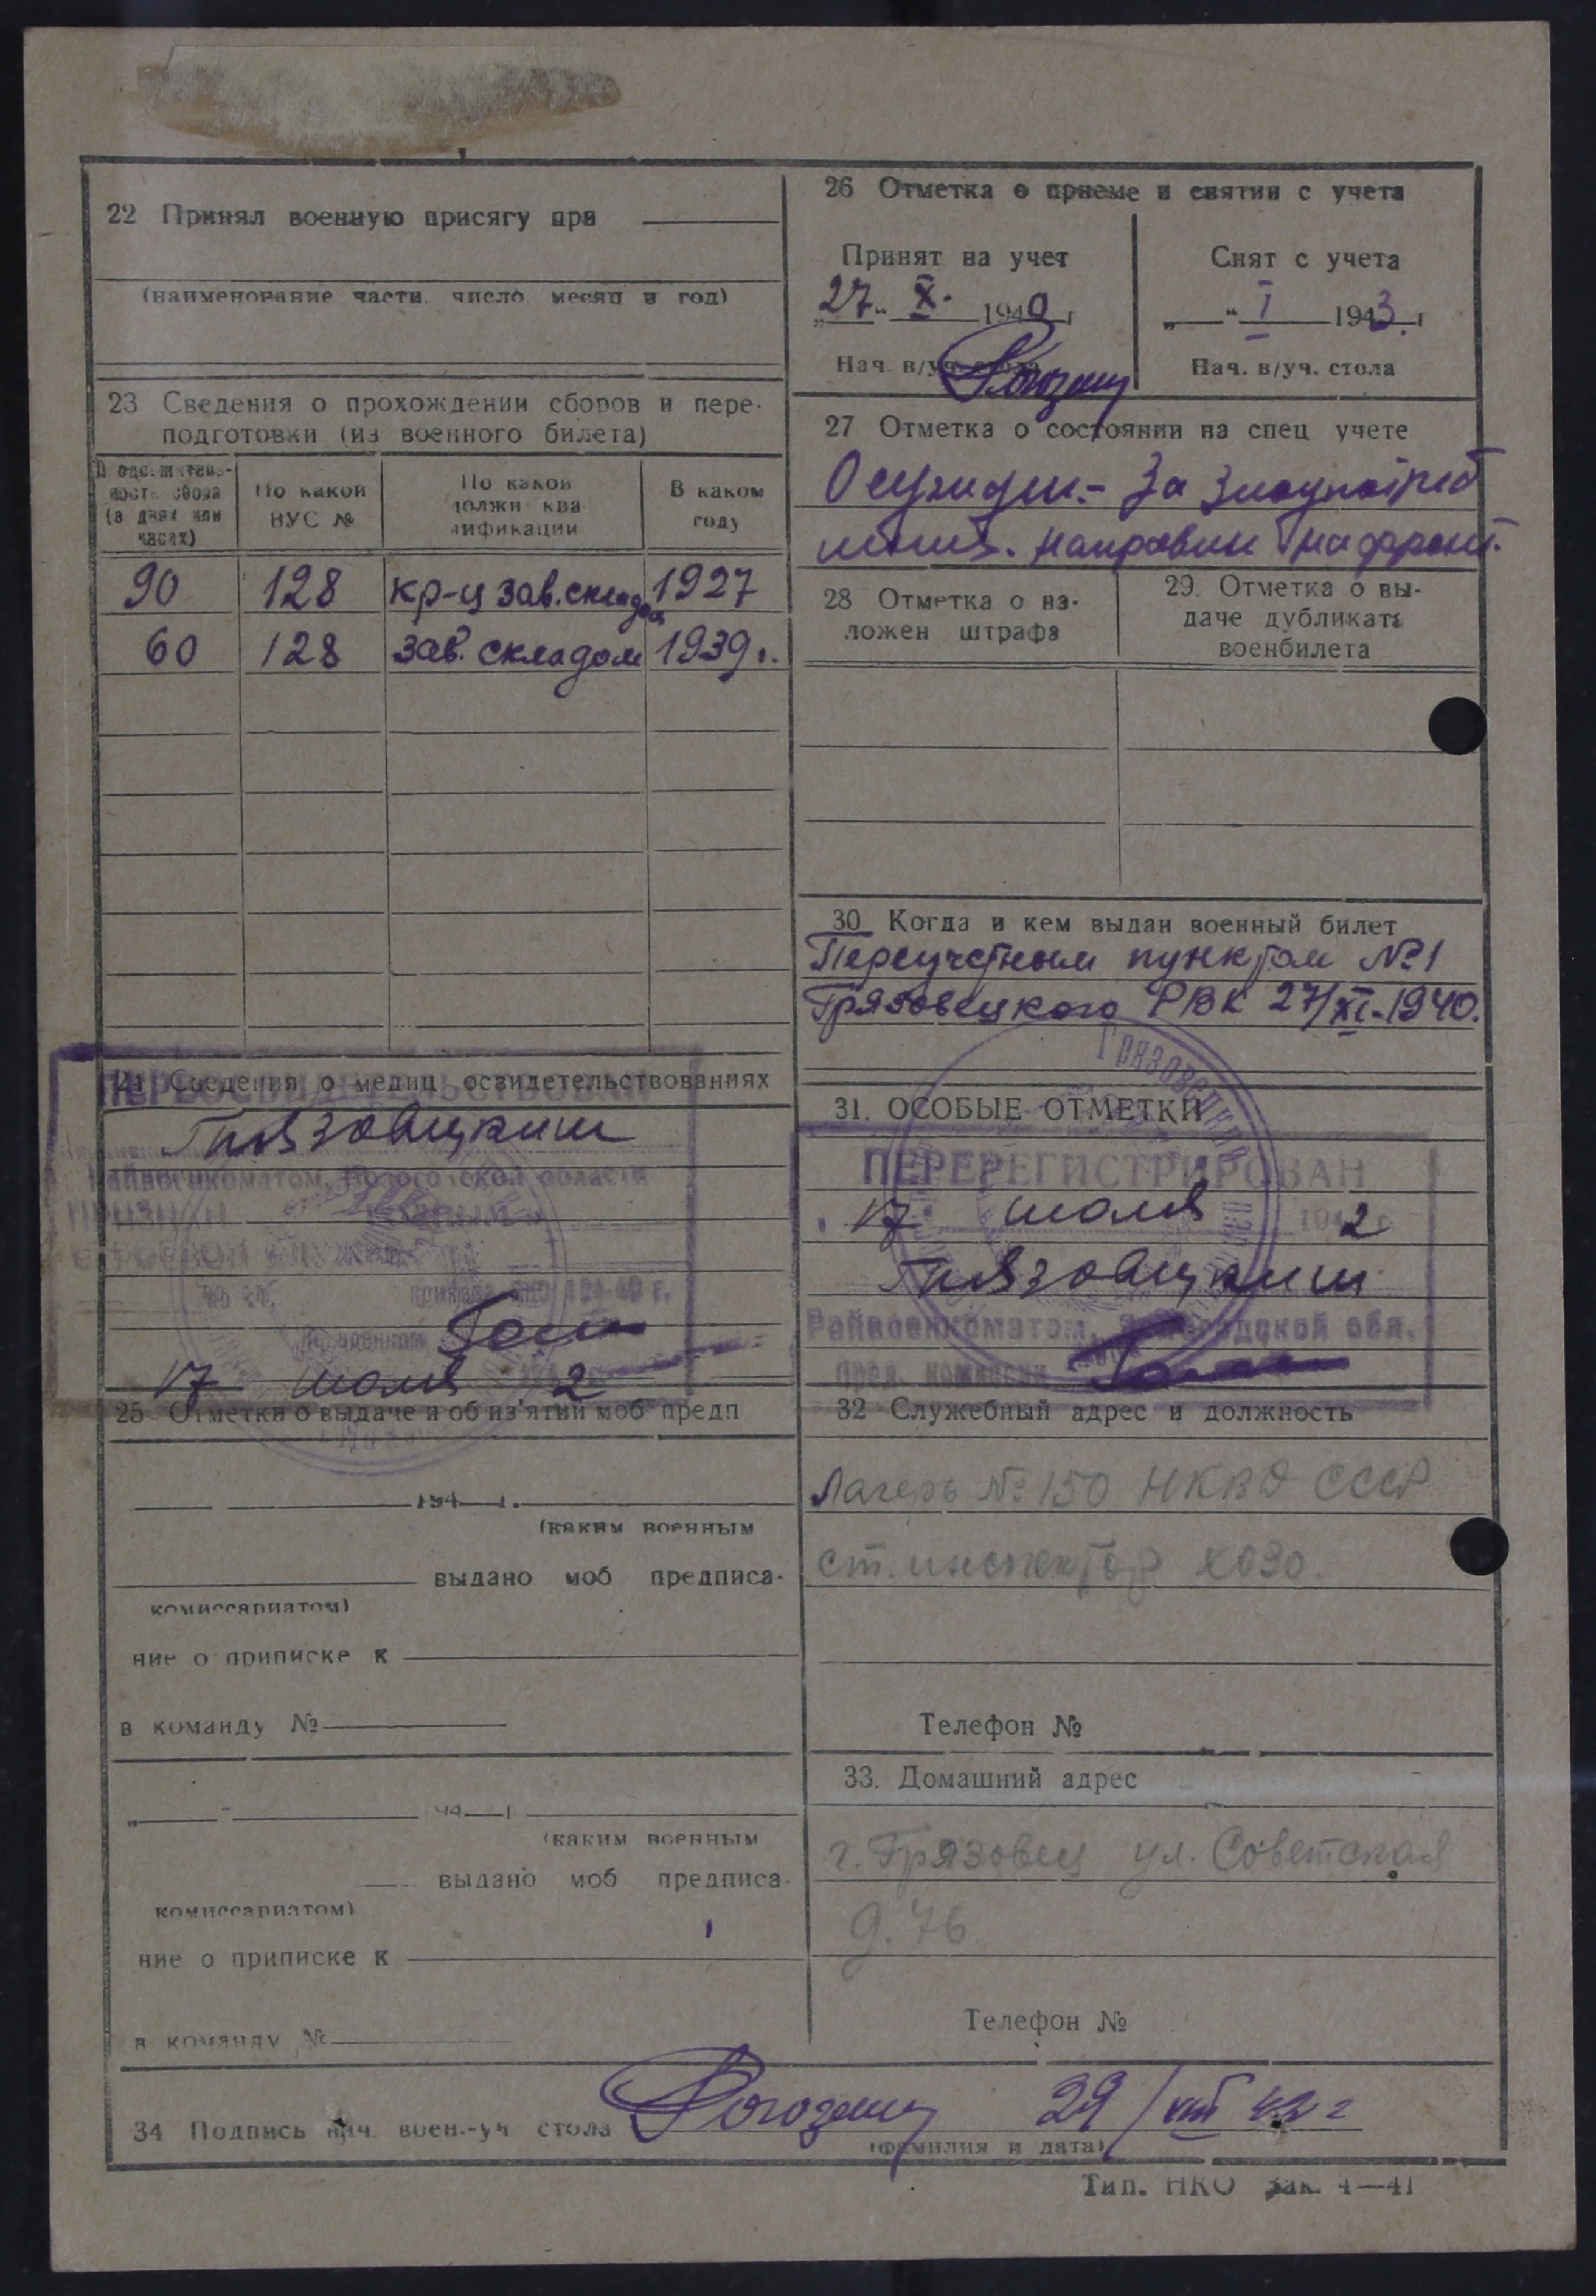 22 Принял военную присягу при
(наименование части, число месяц и год)
23 Сведения о прохождении сборов и пере-
подготовки (из военного билета)
Продолжитель-
ность сбора
(в днях или
часах)
По какой
ВУС №
По какой
должн ква
лификации
В каком
году
90 128 кр-ц зав.складом 1927
60 128 зав. складом 1939 г.
24 Сведения о медиц освидетельствованиях
ПЕРЕОСВИДЕТЕЛЬСТВОВАН
Грязовецким
Райвоенкоматом, Вологодской области
ПРИЗНАН
17 июля 2
25 Отметки о выдаче и об из'ятии моб предп
194 г.
(каким военным
выдано моб предписа-
комиссариатом)
ние о приписке к
в команду №
" " 194 г
(каким военным
выдано моб предписа-
комиссариатом)
ние о приписке к
в команду №
26 Отметка о приеме и снятии с учета
Принят на учет
„27" X. 1940 г
Нач. в/уч. стола
Снят с учета
„ " I 1943 г
Нач. в/уч. стола
27 Отметка о состоянии на спец учете
Осужден.- За злоупотреб
направлен на фронт.
28 Отметка о на-
ложен штрафа
29. Отметка о вы-
даче дубликата
военбилета
30 Когда и кем выдан военный билет
Переучетным пунктом №1
Грязовецкого РВК 27/XI-1940.
31. ОСОБЫЕ ОТМЕТКИ
ПЕРЕРЕГИСТРИРОВАН
17 июля 1942 г.
Грязовецким
Райвоенкоматом, Вологодской обл.
Пред. комиссии
32 Служебный адрес и должность
Лагерь № 150 НКВД СССР
ст. инспектор ХОЗО.
Телефон №
33. Домашний адрес
г. Грязовец ул. Советская
д. 76
Телефон №
34 Подпись нач. воен.-уч стола Рогозин 29/VIII 42 г
(фамилия и дата)
Тип. НКО Зак. 4—41